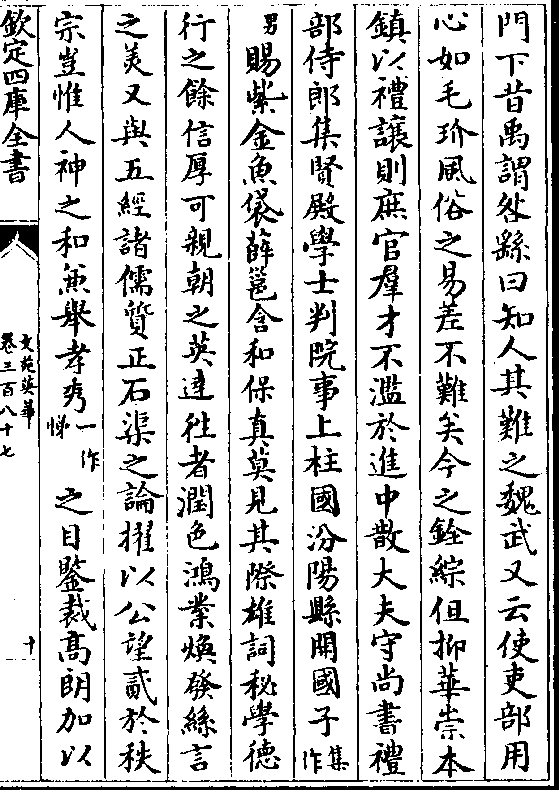 門下昔禹謂咎繇曰知人其難之魏武又云使吏部用
心如毛玠風俗之易差不難矣今之銓綜但抑華崇本
鎮以禮讓則庶官羣才不濫於進中散大夫守尚書禮
部侍郎集賢殿學士判院事上柱國汾陽縣開國子集作
男賜紫金魚袋薛邕含和保真莫見其際雄詞秘學德
行之餘信厚可親朝之英達往者潤色鴻業煥發絲言
之美又與五經諸儒質正石渠之論擢以公望貳於秩
宗豈惟人神之和兼舉孝秀一作悌之目鑒裁高朗加以
欽定四庫全書
文苑英華
卷三百八十七
十